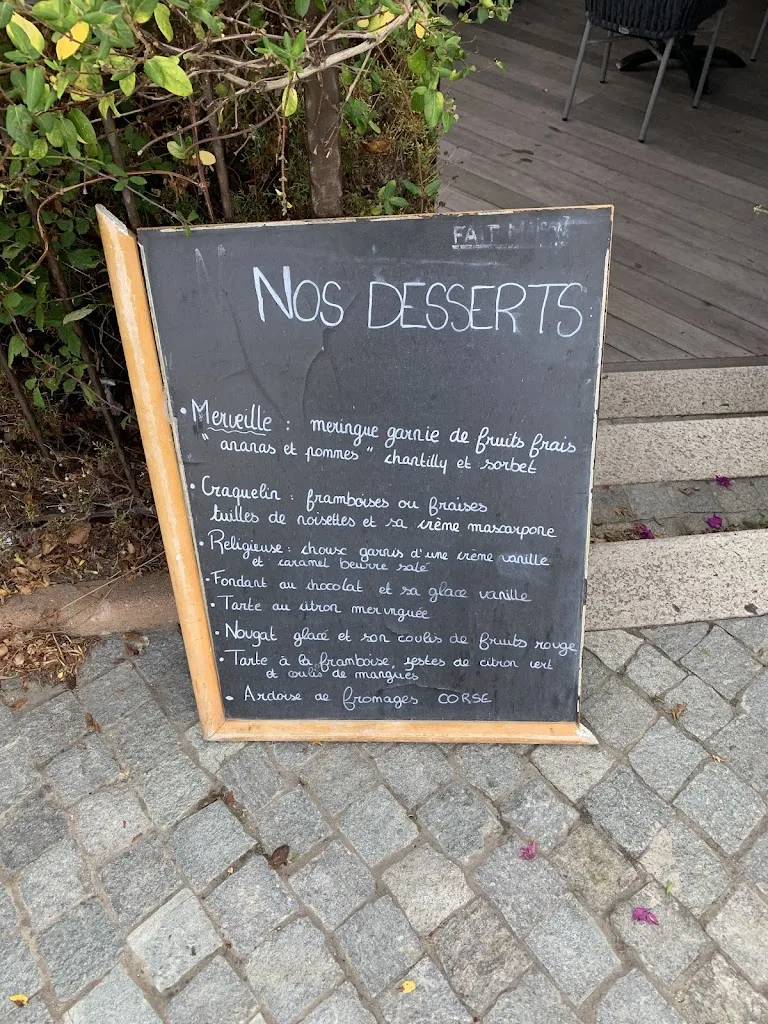 FAIT MAISON
NOS DESSERTS
• Merveille : meringue garnie de fruits frais
" ananas et pommes " chantilly et sorbet
• Craquelin : framboises ou fraises
tuilles de noisettes et sa crème mascarpone
• Religieuse : choux garnis d'une crème vanille
et caramel beurre salé
• Fondant au chocolat et sa glace vanille
• Tarte au citron meringuée
• Nougat glacé et son coulis de fruits rouge
• Tarte à la framboise, zestes de citron vert
et coulis de mangues
• Ardoise de fromages CORSE